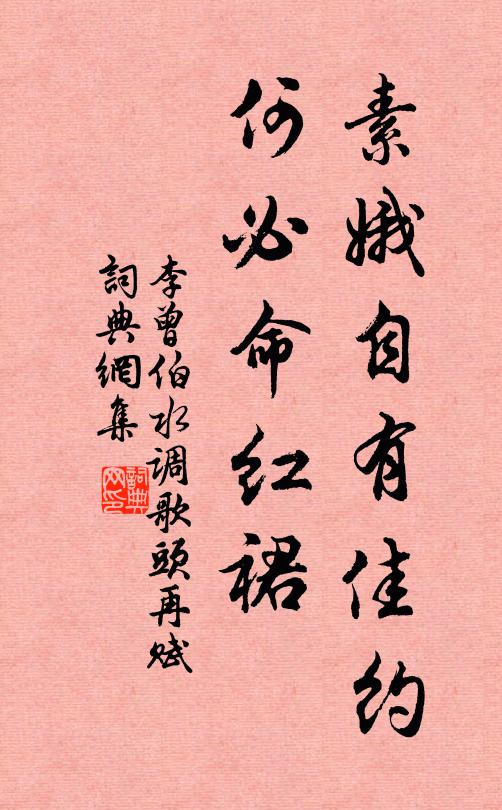 素娥自有佳约
何必命红裙
李曾伯水调歌頭再赋
詞典網集
詞典網印